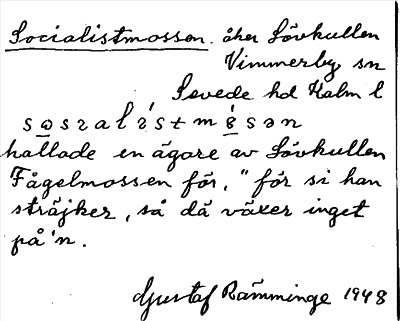 Socialistmossen. åker Lövkullen
Vimmerby sn
Sevede hd Kalm l
kallade en ägare av Lövkullen
Fågelmossen för, "för si han
sträjker, så då växer inget
på'n.
Gustaf Rämminge 1948